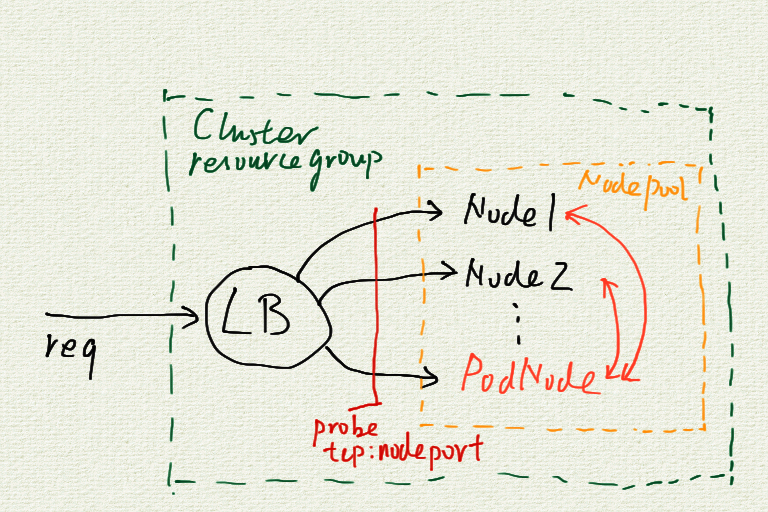 Cluster
resource group
Nodepool
Node1
Node2
LB
req
PodNode
probe
tcp:nodeport